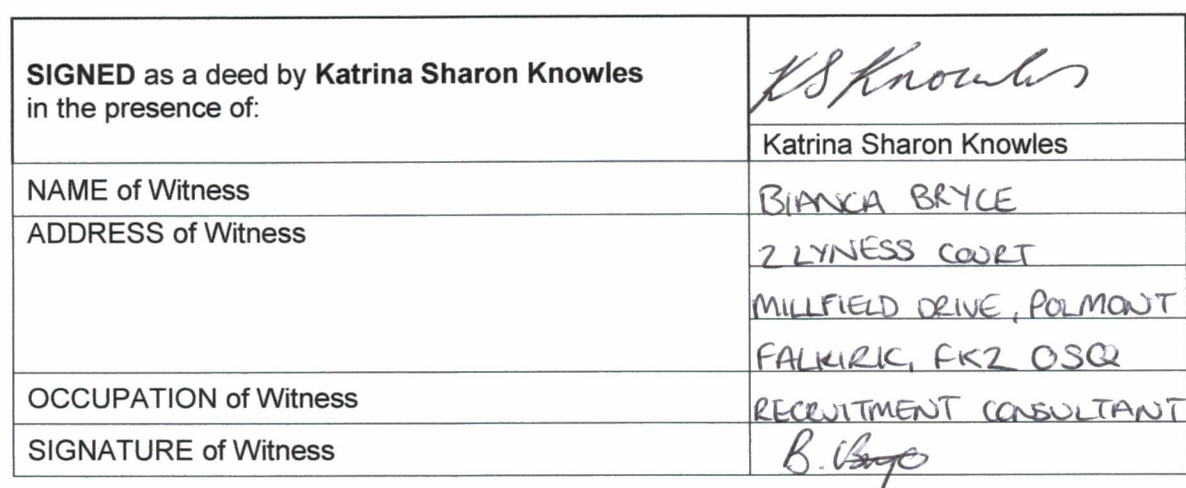 SIGNED as a deed by Katrina Sharon Knowles
in the presence of:
KS Knowles
Katrina Sharon Knowles
NAME of Witness
BIANCA BRYCE
ADDRESS of Witness
2 LYNESS COURT
MILLFIELD DRIVE, POLMONT
FALKIRK, FK2 0SQ
OCCUPATION of Witness
RECRUITMENT CONSULTANT
SIGNATURE of Witness
B. Bryce